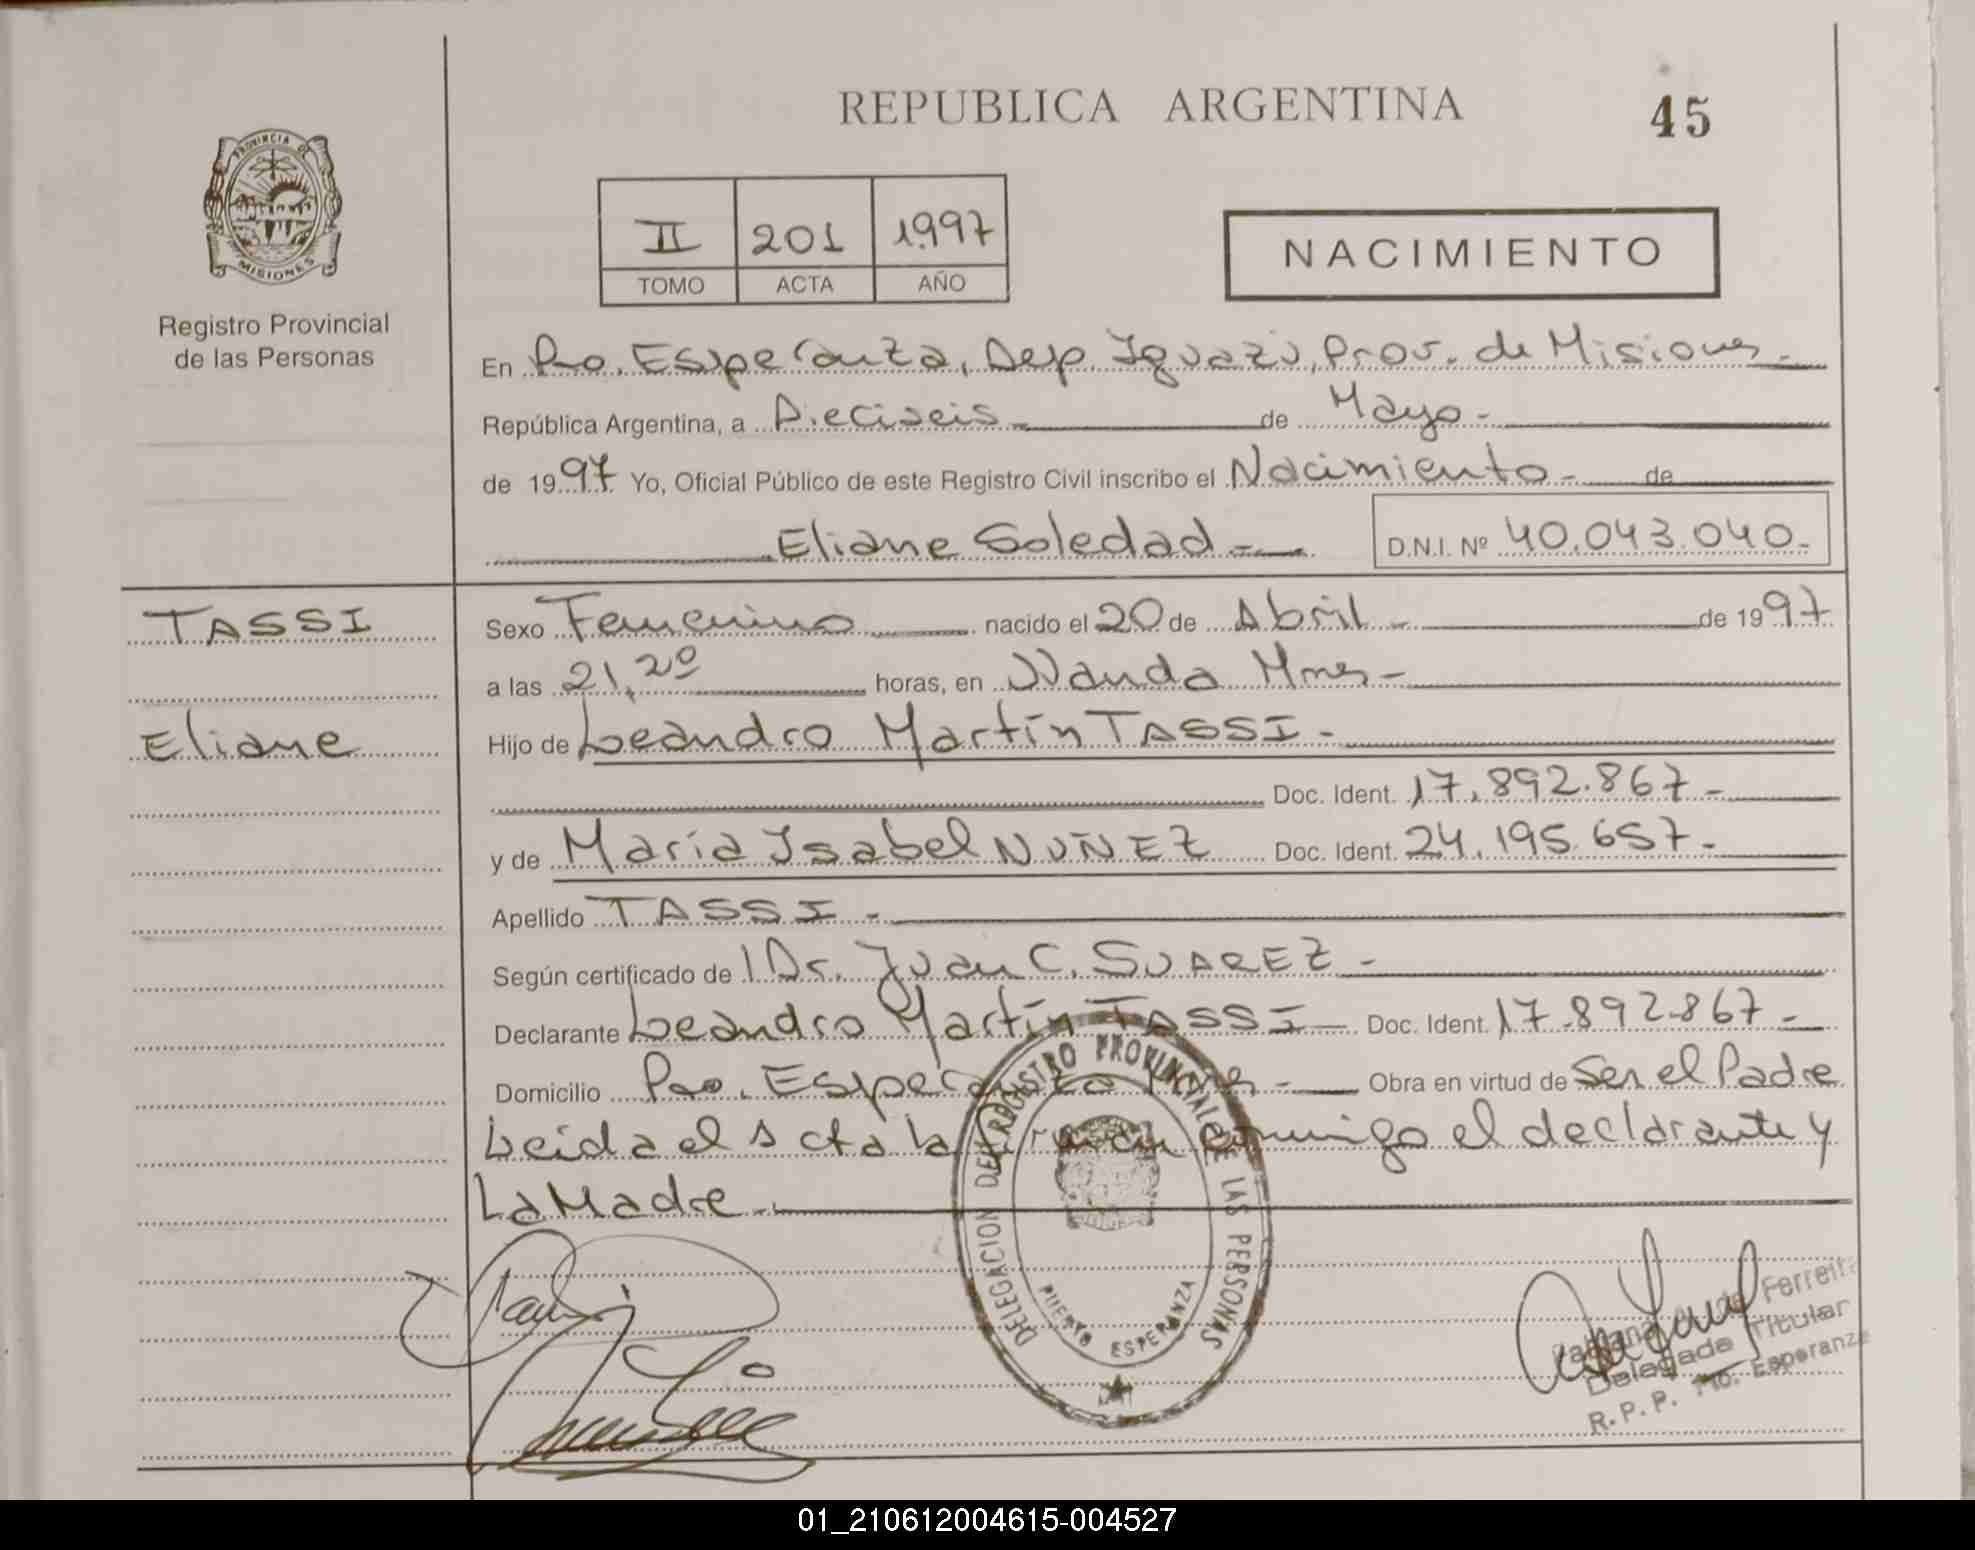 REPUBLICA ARGENTINA
45
PROVINCIA DE
MISIONES
Registro Provincial
de las Personas
II 201 1.997
TOMO ACTA AÑO
NACIMIENTO
En Pto. Esperanza, Dep. Iguazú, Prov. de Misiones.-
República Argentina, a Dieciseis.- de Mayo.-
de 1997 Yo, Oficial Público de este Registro Civil inscribo el Nacimiento.- de
Eliane Soledad.-
D.N.I. Nº 40.043.040.-
TASSI
Sexo Femenino nacido el 20 de Abril.- de 1997.
a las 21,20 horas, en Wanda Mnes.-
Eliane
Hijo de Leandro Martín TASSI.-
Doc. Ident. 17.892.867.-
y de María Isabel NUÑEZ Doc. Ident. 24.195.657.-
Apellido TASSI.-
Según certificado de Dr. Juan C. SUAREZ.-
Declarante Leandro Martín TASSI Doc. Ident. 17.892.867.-
Domicilio Pto. Esperanza Mnes.- Obra en virtud de Ser el Padre
Leida el Acta la firman conmigo el declarante y
La Madre.-
DELEGACION DEL REGISTRO PROVINCIAL DE LAS PERSONAS
PUERTO ESPERANZA
de Ferreira
Delegada Titular
R.P.P. Pto. Esperanza
01_210612004615-004527